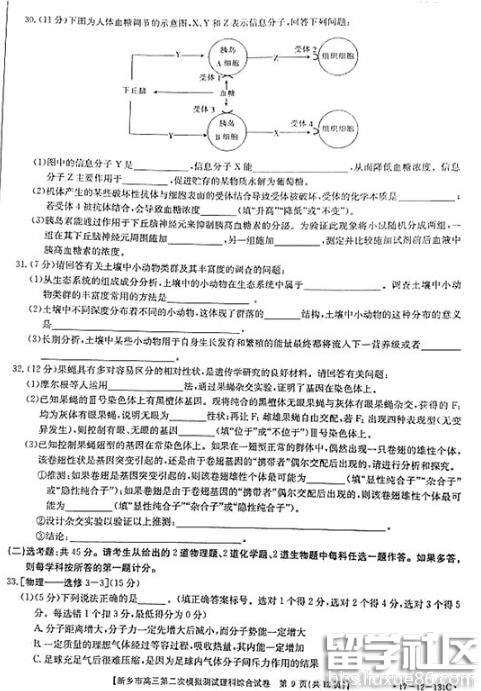 30.(11分)下图为人体血糖调节的示意图,X、Y和Z表示信息分子,回答下列问题:
胰岛 A细胞 Z 受体1 组织细胞
Y 受体2
下丘脑 血糖
受体3
Y 胰岛 B细胞 X 受体4 组织细胞
(1)图中的信息分子Y是________,信息分子X能________,从而降低血糖浓度。信息
分子Z主要作用于________,促进贮存的某物质水解为葡萄糖。
(2)机体产生的某些破坏性抗体与细胞表面的受体结合导致受体被破坏,受体的化学本质是________;
若受体4被抗体结合,会导致血糖浓度________(填“升高”“降低”或“不变”)。
(3)胰岛素能透过作用于下丘脑神经元来抑制胰高血糖素的分泌。为验证此现象将小鼠随机分成两组,一
组在其下丘脑神经元周围施加________,另一组施加________,测定并比较施加试剂前后血液中
胰高血糖素的浓度。
31.(7分)请回答有关土壤中小动物类群及其丰富度的调查的问题:
(1)从生态系统的组成成分分析,土壤中的小动物在生态系统中属于________。调查土壤中小动
物类群的丰富度常用的方法是________。
(2)土壤中不同深度分布着不同的小动物,这体现了群落的________结构,土壤中小动物的这种分布的意义
是________。
(3)长期分析,土壤中某些小动物用于自身生长发育和繁殖的能量最终都将流入下一营养级或者________
________。
32.(12分)果蝇具有多对容易区分的相对性状,是遗传学研究的良好材料。请回答有关问题:
(1)摩尔根等人运用________法,通过果蝇杂交实验,证明了基因在染色体上。
(2)已知果蝇的Ⅲ号染色体上有黑檀体基因。现将纯合的黑檀体无眼果蝇与灰体有眼果蝇杂交,获得的F₁
均为灰体有眼果蝇,说明无眼为________性状;再让F₁雌雄果蝇自由交配,若F₂出现四种表现型(无变
异发生),则控制有眼、无眼的基因________(填“位于”或“不位于”)Ⅲ号同源染色体上。
(3)已知控制果蝇翅型的基因在常染色体上。如果在一翅型正常的群体中,偶然出现一只卷翅的雄性个体。
该卷翅性状是基因突变引起的,还是由于卷翅基因的“携带者”偶尔交配后出现的,请进行分析和探究。
①推测:如果卷翅是基因突变引起的,则该卷翅雄性个体最可能为________(填“显性纯合子”“杂合子”
或“隐性纯合子”);如果卷翅是由于卷翅基因的“携带者”偶尔交配后出现的,则该卷翅雄性个体最可
能为________(填“显性纯合子”“杂合子”或“隐性纯合子”)。
②设计杂交实验以验证以上推测:________
③结论:________
(二)选考题:共45分。请考生从给出的2道物理题、2道化学题、2道生物题中每科任选一题作答。如果多答,
则每学科按所答的第一题计分。
33.[物理——选修3-3](15分)
(1)(5分)下列说法正确的是________。(填正确答案标号。选对1个得2分,选对2个得4分,选对3个得5
分。每选错1个扣3分,最低得分为0分)
A.分子距离增大,分子力一定先增大后减小,而分子势能一定增大
B.一定质量的理想气体经过等容过程,吸收热量,其内能一定增加
C.物理性质各向同性的固体
【新乡市高三第二次模拟测试理科综合试卷 第9页(共12页)】
·17-12-131C·
留学社区
bbs.liuxue86.com